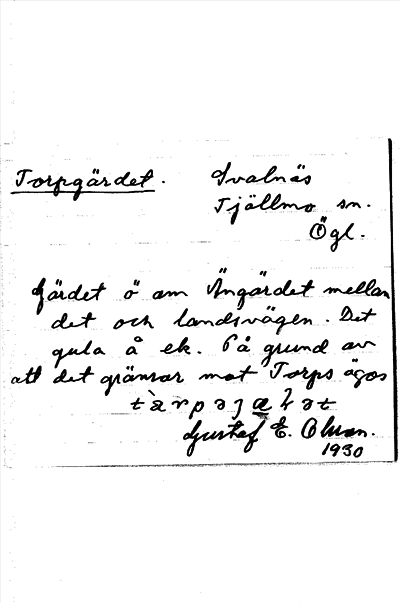 Torpgärdet. Svalnäs
Tjällmo sn.
Ögl.
Gärdet ö om Ängärdet mellan
det och landsvägen. Det
gula å ek. På grund av
att det gränsar mot Torps ägor
Gustaf E. Olsson.
1930